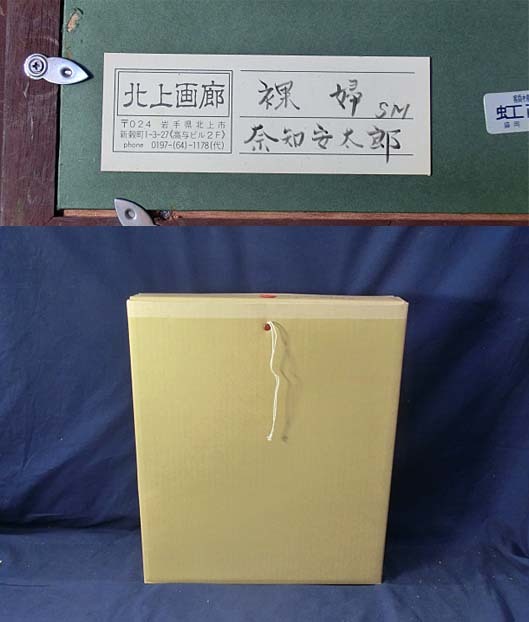 北上画廊
〒024 岩手県北上市
新穀町1-3-27《高与ビル2F》
phone 0197-(64)-1178(代)
裸婦 SM
奈知安太郎
虹
盛岡